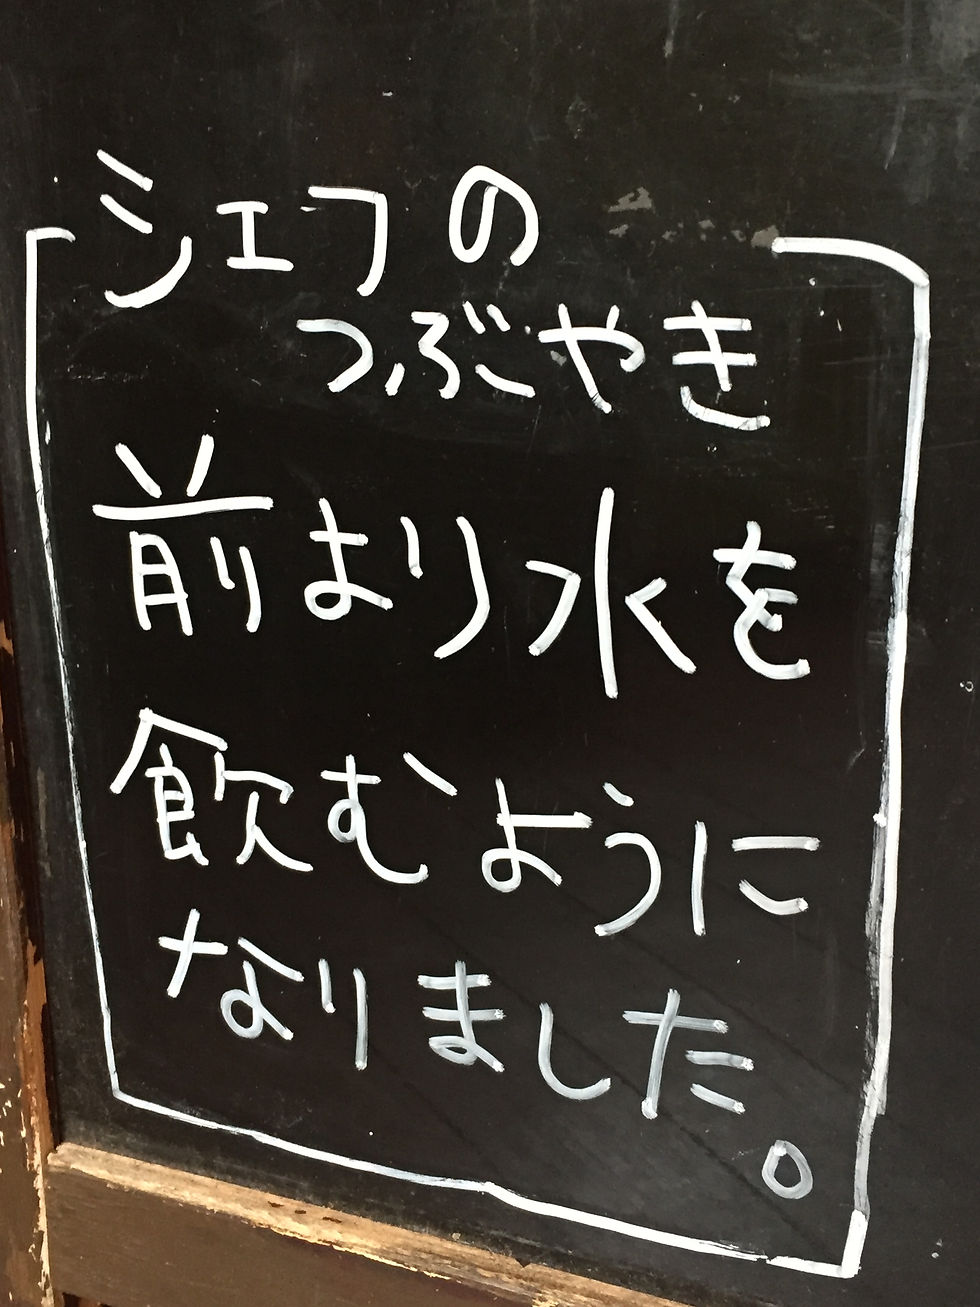 シェフの
つぶやき
前より水を
飲むように
なりました。